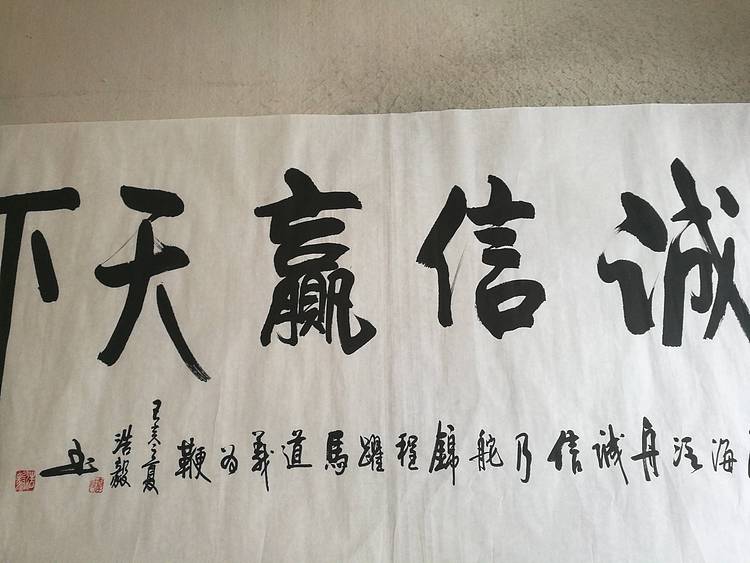 诚信赢天下
海泛舟诚信乃舵錦程躍馬道義为鞭
己亥之夏
浩毅
书